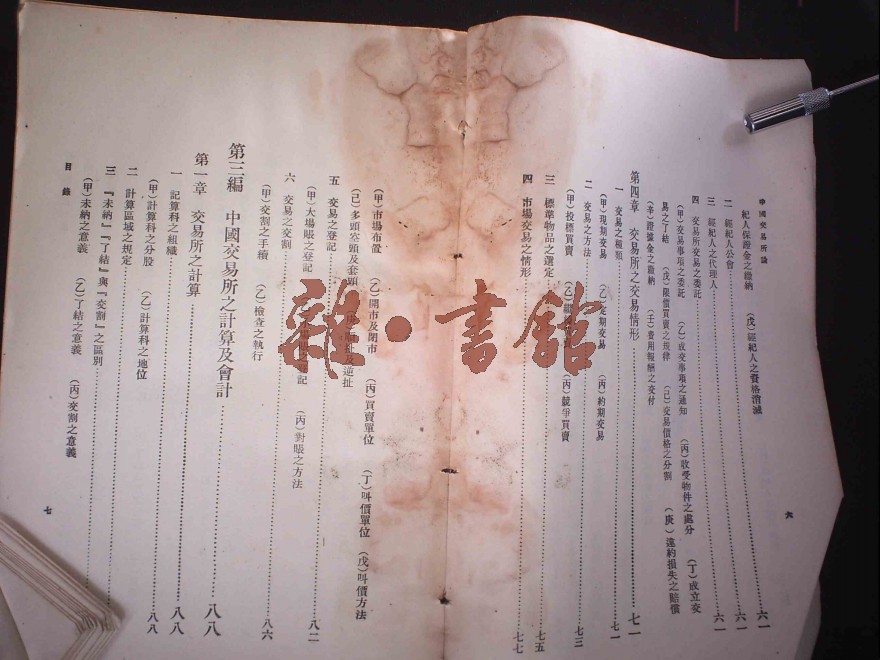 中國交易所論
紀人保證金之繳納 (戊)經紀人之資格消滅
二 經紀人公會 六一
三 經紀人之代理人 六一
四 交易所交易之委託 六一
(甲)交易事項之委託 (乙)成交事項之通知 (丙)收受物件之處分 (丁)成立交
易之了結 (戊)限價買賣之規律 (己)交易價格之分割 (庚)違約損失之賠償
(辛)證據金之繳納 (壬)費用報酬之交付
第四章 交易所之交易情形 七一
一 交易之種類 七一
(甲)現期交易 (乙)定期交易 (丙)約期交易
二 交易之方法 七三
(甲)投標買賣 (乙) (丙)競爭買賣
三 標準物品之選定 七五
四 市場交易之情形 七七
六
(甲)市場布置 (乙)開市及閉市 (丙)買賣單位 (丁)叫價單位 (戊)叫價方法
(己)多頭空頭及套頭 及逆扯
五 交易之登記 八二
(甲)大場賬之登記 登記 (丙)對賬之方法
六 交易之交割 八六
(甲)交割之手續 (乙)檢查之執行
第三編 中國交易所之計算及會計
第一章 交易所之計算 八八
一 記算科之組織 八八
(甲)計算科之分股 (乙)計算科之地位
二 計算區域之規定 八八
三 『未納』『了結』與『交割』之區別
(甲)未納之意義 (乙)了結之意義 (丙)交割之意義
目錄
七
雜·書館